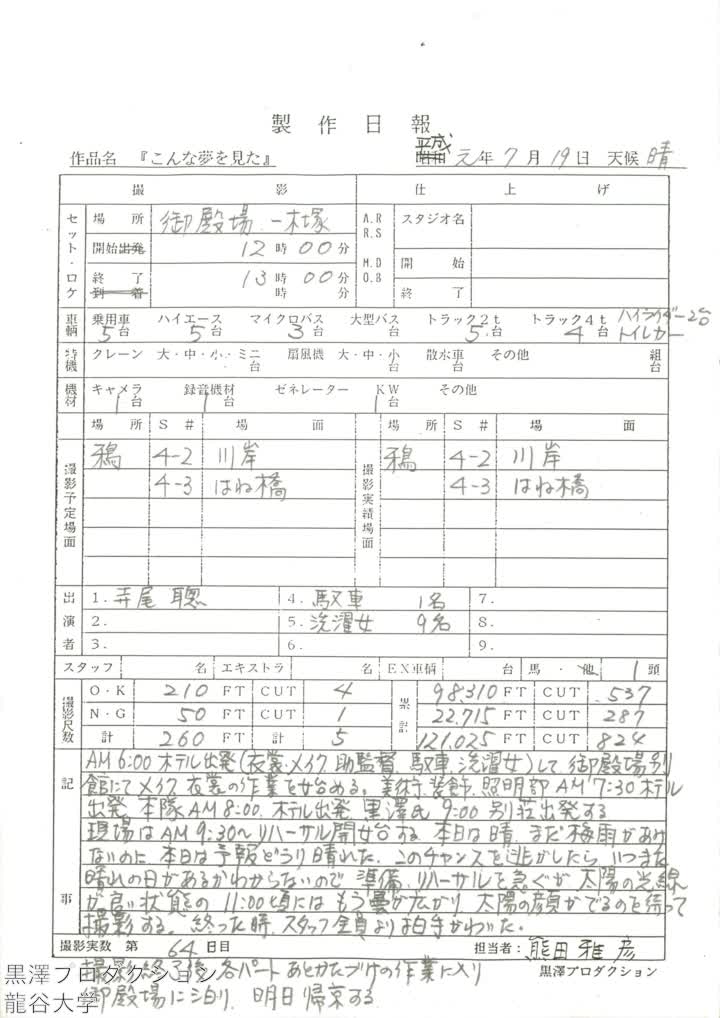 製作日報
作品名 『こんな夢を見た』 平成 元年 7月 19日 天候 晴
撮影 仕上げ
セット・ロケ 場所 御殿場 一本塚 A.R R.S スタジオ名
開始 出発 12時00分 M.D O.B 開始
終了 到着 13時00分 時 分 終了
車輌 乗用車 5台 ハイエース 5台 マイクロバス 3台 大型バス 台 トラック2t 5台 トラック4t 4台 ハイライダー2台 トイレカー
特機 クレーン 大・中・小・ミニ 台 扇風機 大・中・小 台 散水車 台 その他 組 台
機材 キャメラ 1台 録音機材 1台 ゼネレーター KW 1台 その他
撮影予定場面 場所 S# 場面 撮影実績場面 場所 S# 場面
鴉 4-2 川岸 鴉 4-2 川岸
4-3 はね橋 4-3 はね橋
出演者 1.寺尾 聰 4.馭車 1名 7.
2. 5.洗濯女 9名 8.
3. 6. 9.
スタッフ 名 エキストラ 名 EX車輌 台 馬・他 1頭
撮影尺数 O・K 210 FT CUT 4 累計 98,310 FT CUT 537
N・G 50 FT CUT 1 22,715 FT CUT 287
計 260 FT 計 5 121,025 FT CUT 824
記事
AM 6:00 ホテル出発(衣裳・メイク 助監督 馭車 洗濯女)して 御殿場別
館にてメイク 衣裳の作業を始める。美術、装飾、照明部 AM 7:30 ホテル
出発 本隊AM 8:00 ホテル出発 黒澤氏 9:00 別荘出発する
現場はAM 9:30〜リハーサル開始する 本日は晴、まだ梅雨があけ
ないのに 本日は予報どうり晴れた。このチャンスを逃がしたら、いつまた
晴れの日があるかわからないので 準備、リハーサルを急ぐが 太陽の光線
が良い状態の 11:00頃にはもう曇が広がり 太陽の顔がでるのを待って
撮影する。終った時、スタッフ全員より拍手がわいた。
撮影実数 第 64日目 担当者:熊田雅彦
撮影終了後 各パート あとかたづけの作業に入り
御殿場に泊り、明日帰京する
黒澤プロダクション
黒澤プロダクション
龍谷大学